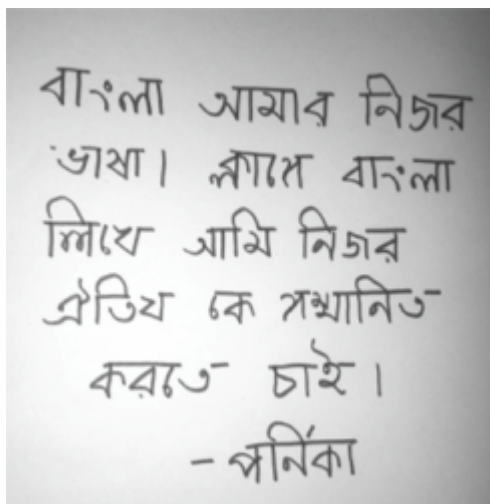 বাংলা আমার নিজর
ভাষা। ক্লাসে বাংলা
লিখে আমি নিজর
ঐতিয কে সম্মানিত
করতে চাই।
- পর্নিকা